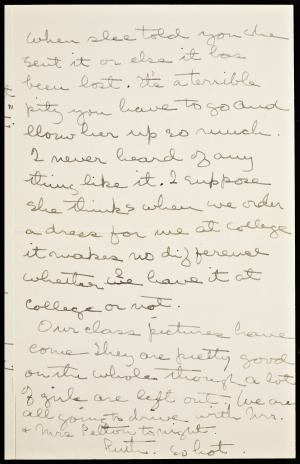 when she told you she
sent it or else it has
been lost. It's a terrible
pity you have to go and
blow her up so much.
I never heard of any
thing like it. I suppose
she thinks when we order
a dress for me at college
it makes no difference
whether we have it at
college or not.
Our class pictures have
come they are pretty good
on the whole though a lot
of girls are left out. We are
all going to drive with Mr.
& Mrs Pelton tonight.
Ruth. So hot.